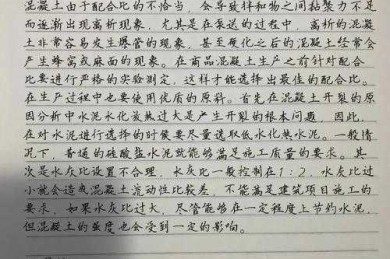 混凝土由于配合比的不恰当，会导致拌和物之间黏聚力不足
而逐渐出现离析现象，尤其是在泵送的过程中，离析的混凝
土非常容易发生爆管的现象，甚至硬化之后的混凝土经常会
产生蜂窝及麻面的现象。在商品混凝土生产之前针对配合
比要进行严格的实验测定，这样才能选择出最佳的配合比。
在生产过程中也要使用优质的原料。首先在混凝土开裂的原
因分析中水泥水化放热过大是产生开裂的根本问题，因此，
在对水泥进行选择的时候要尽量选取低水化热水泥。一般情
况下，普通的硅酸盐水泥就能够满足施工质量的要求。其
次是水灰比设置不合理，水灰比一般控制在1：2，水灰比过
小就会造成混凝土流动性比较差，不能满足建筑项目施工的
要求，如果水灰比过大，尽管能够在一定程度上节约水泥，
但混凝土的强度也会受到一定的影响。